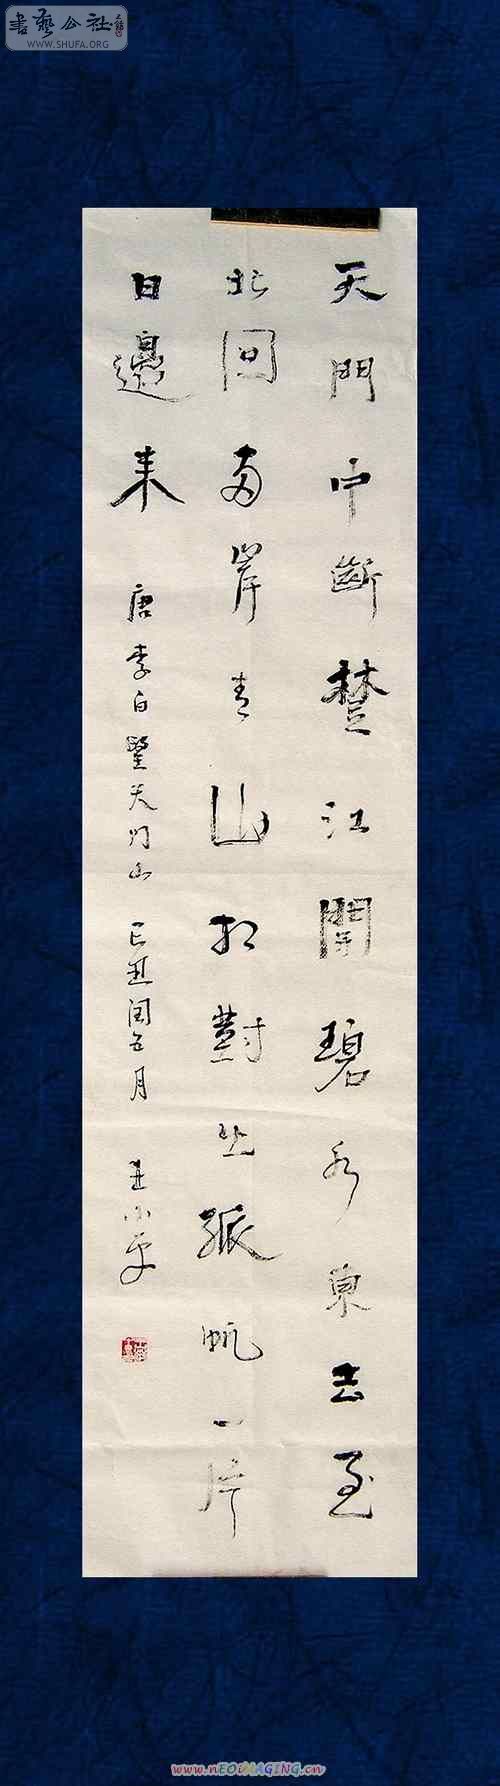 書藝公社
WWW.SHUFA.ORG
天門中斷楚江開碧水東去至
北回兩岸青山相對出孤帆一片
日邊來
唐李白望天门山 己丑闰五月
www.nEOiMAGING.cn